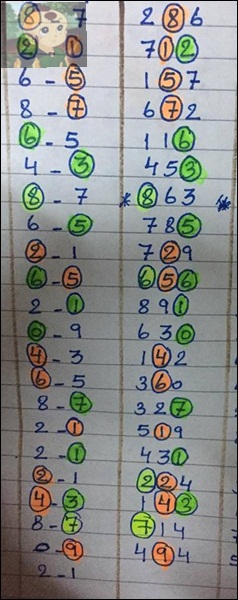 8 7 286
2 1 712
6 - 5 157
8 - 7 672
6 - 5 116
4 - 3 453
8 - 7 * 863 *
6 - 5 785
2 - 1 729
6 - 5 656
2 - 1 891
0 - 9 630
4 - 3 142
6 - 5 360
8 - 7 327
2 - 1 519
2 - 1 431
2 - 1 224
4 - 3 143
8 - 7 714
0 - 9 494
2 - 1